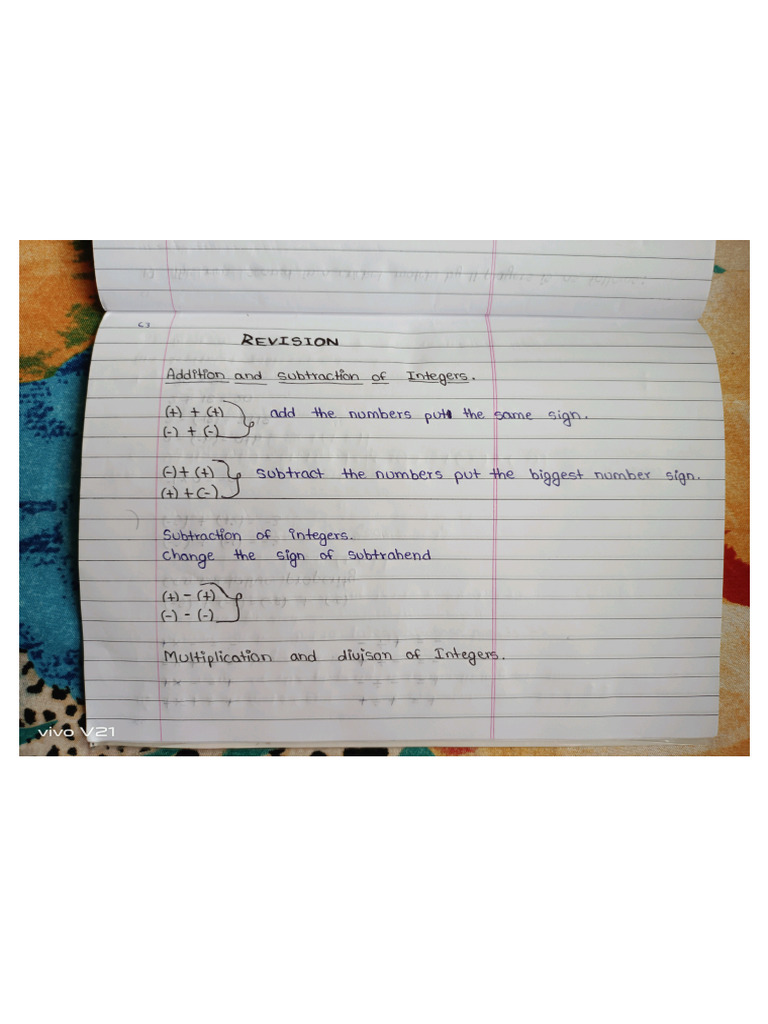 REVISION
Addition and subtraction of Integers.
(+) + (+)
(-) + (-)
add the numbers put the same sign.
(-) + (+)
(+) + (-)
subtract the numbers put the biggest number sign.
Subtraction of integers.
change the sign of subtrahend
(+) - (+)
(-) - (-)
Multiplication and divison of Integers.
vivo V21